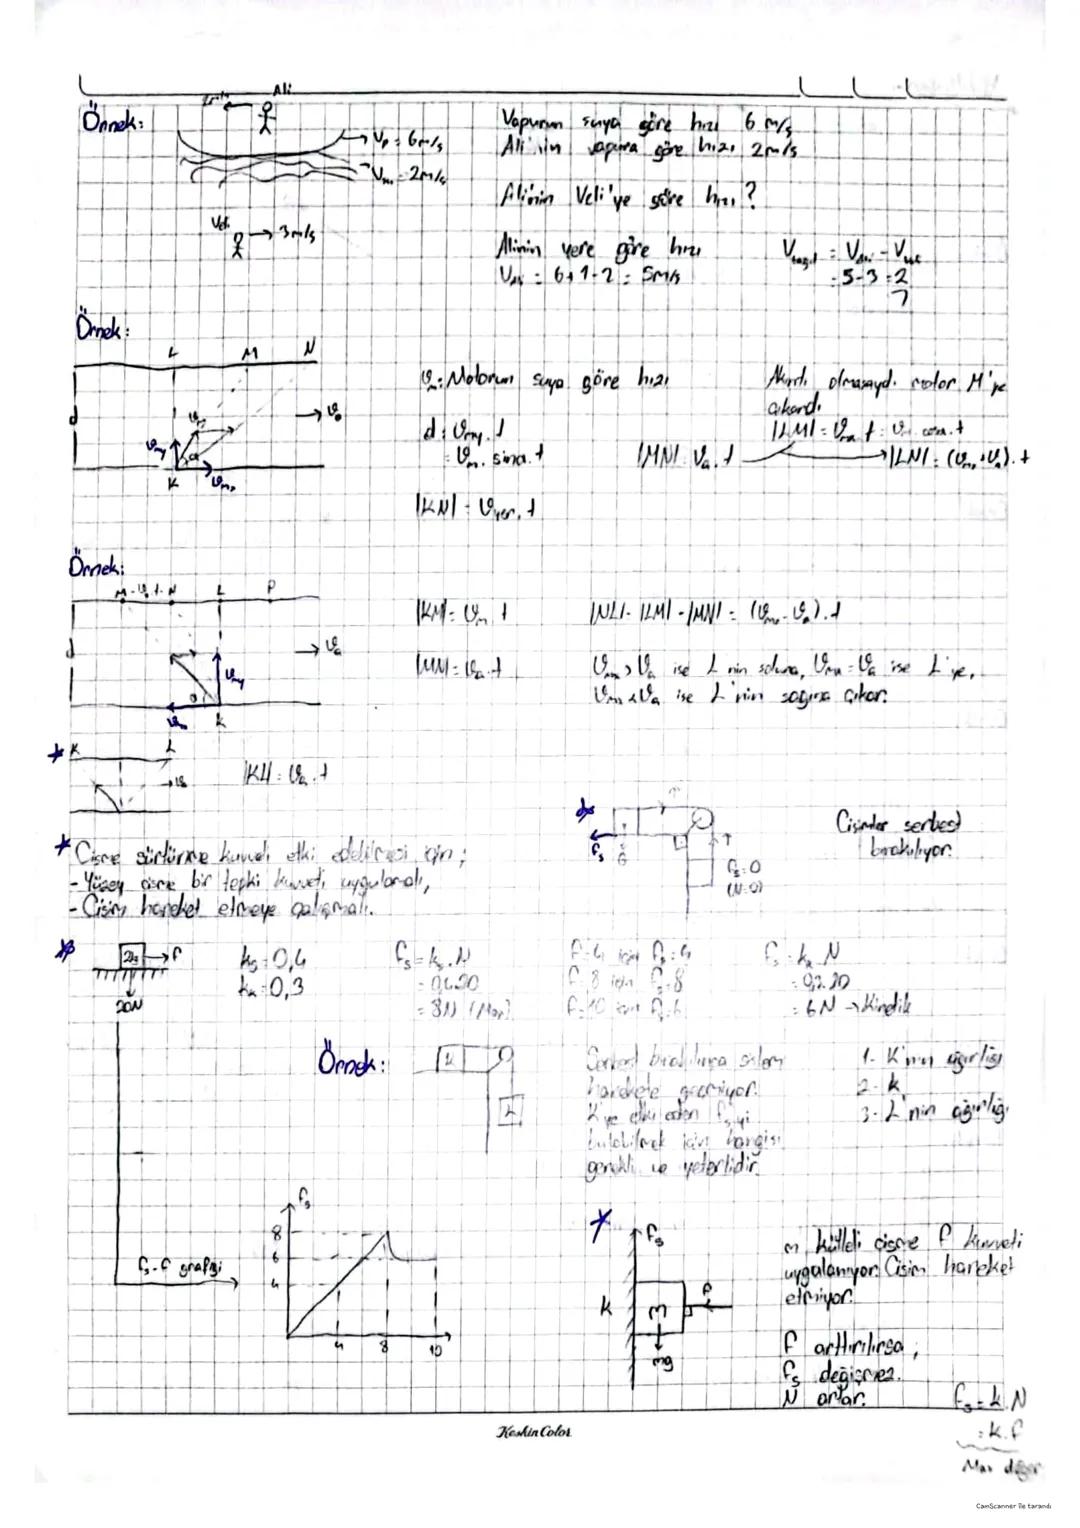 Örnek:
Ali
Vp = 6m/s
= 2m/s
Veli
3m/s
Vapurun suya göre hızı 6 m/s
Ali'nin vapura göre hızı 2m/s
Ali'nin Veli'ye göre hızı?
Alinin yere göre hızı
= 5m/s
= 5-3=2
Örnek:
L M N
d
K
: Motorun suya göre hızı
Akıntı olmasaydı motor M'ye
çıkardı.
d = Vmy.t
= Vm.sinα.t
|MN| = Va.t
|LN| = (Vmx+Va).t
|KN| = Vyer.t
Örnek:
N L P
d
K
|KM| = Vm.t
|NL| = |LM| - |MN| = (Vmx - Va).t
Vmx > Va ise L nin soluna, Vmx = Va ise L'ye,
Vmx < Va ise L'nin sağına çıkar.
K L
|KL| = Va.t
Cisme sürtünme kuvveti etki edebilmesi için;
- Yüzey cisme bir tepki kuvveti uygulamalı,
- Cisim hareket etmeye çalışmalı.
fs
G
fs=0
(N=0)
Cisimler serbest
bırakılıyor.
2kg
F
20N
ks=0,4
kk=0,3
fs=ks.N
= 0,4.20
= 8N (Max)
F=4 için fs=4
F=8 için fs=8
F=10 için fs=6
= 6N → Kinetik
Örnek:
K
L
Serbest bırakılınca sistem
harekete geçmiyor.
K'ye etki eden fs'yi
bulabilmek için hangisi
gerekli ve yeterlidir.
1- K'nın ağırlığı
2- k
3- L'nin ağırlığı
fs-F grafiği
fs
8
6
4
4 8 10
fs
k
m
F
mg
m kütleli cisme F kuvveti
uygulanıyor. Cisim hareket
etmiyor.
F arttırılırsa;
fs değişmez.
N artar.
fs=k.N
=k.F
Max değer
Keskin Color
CamScanner ile tarandı